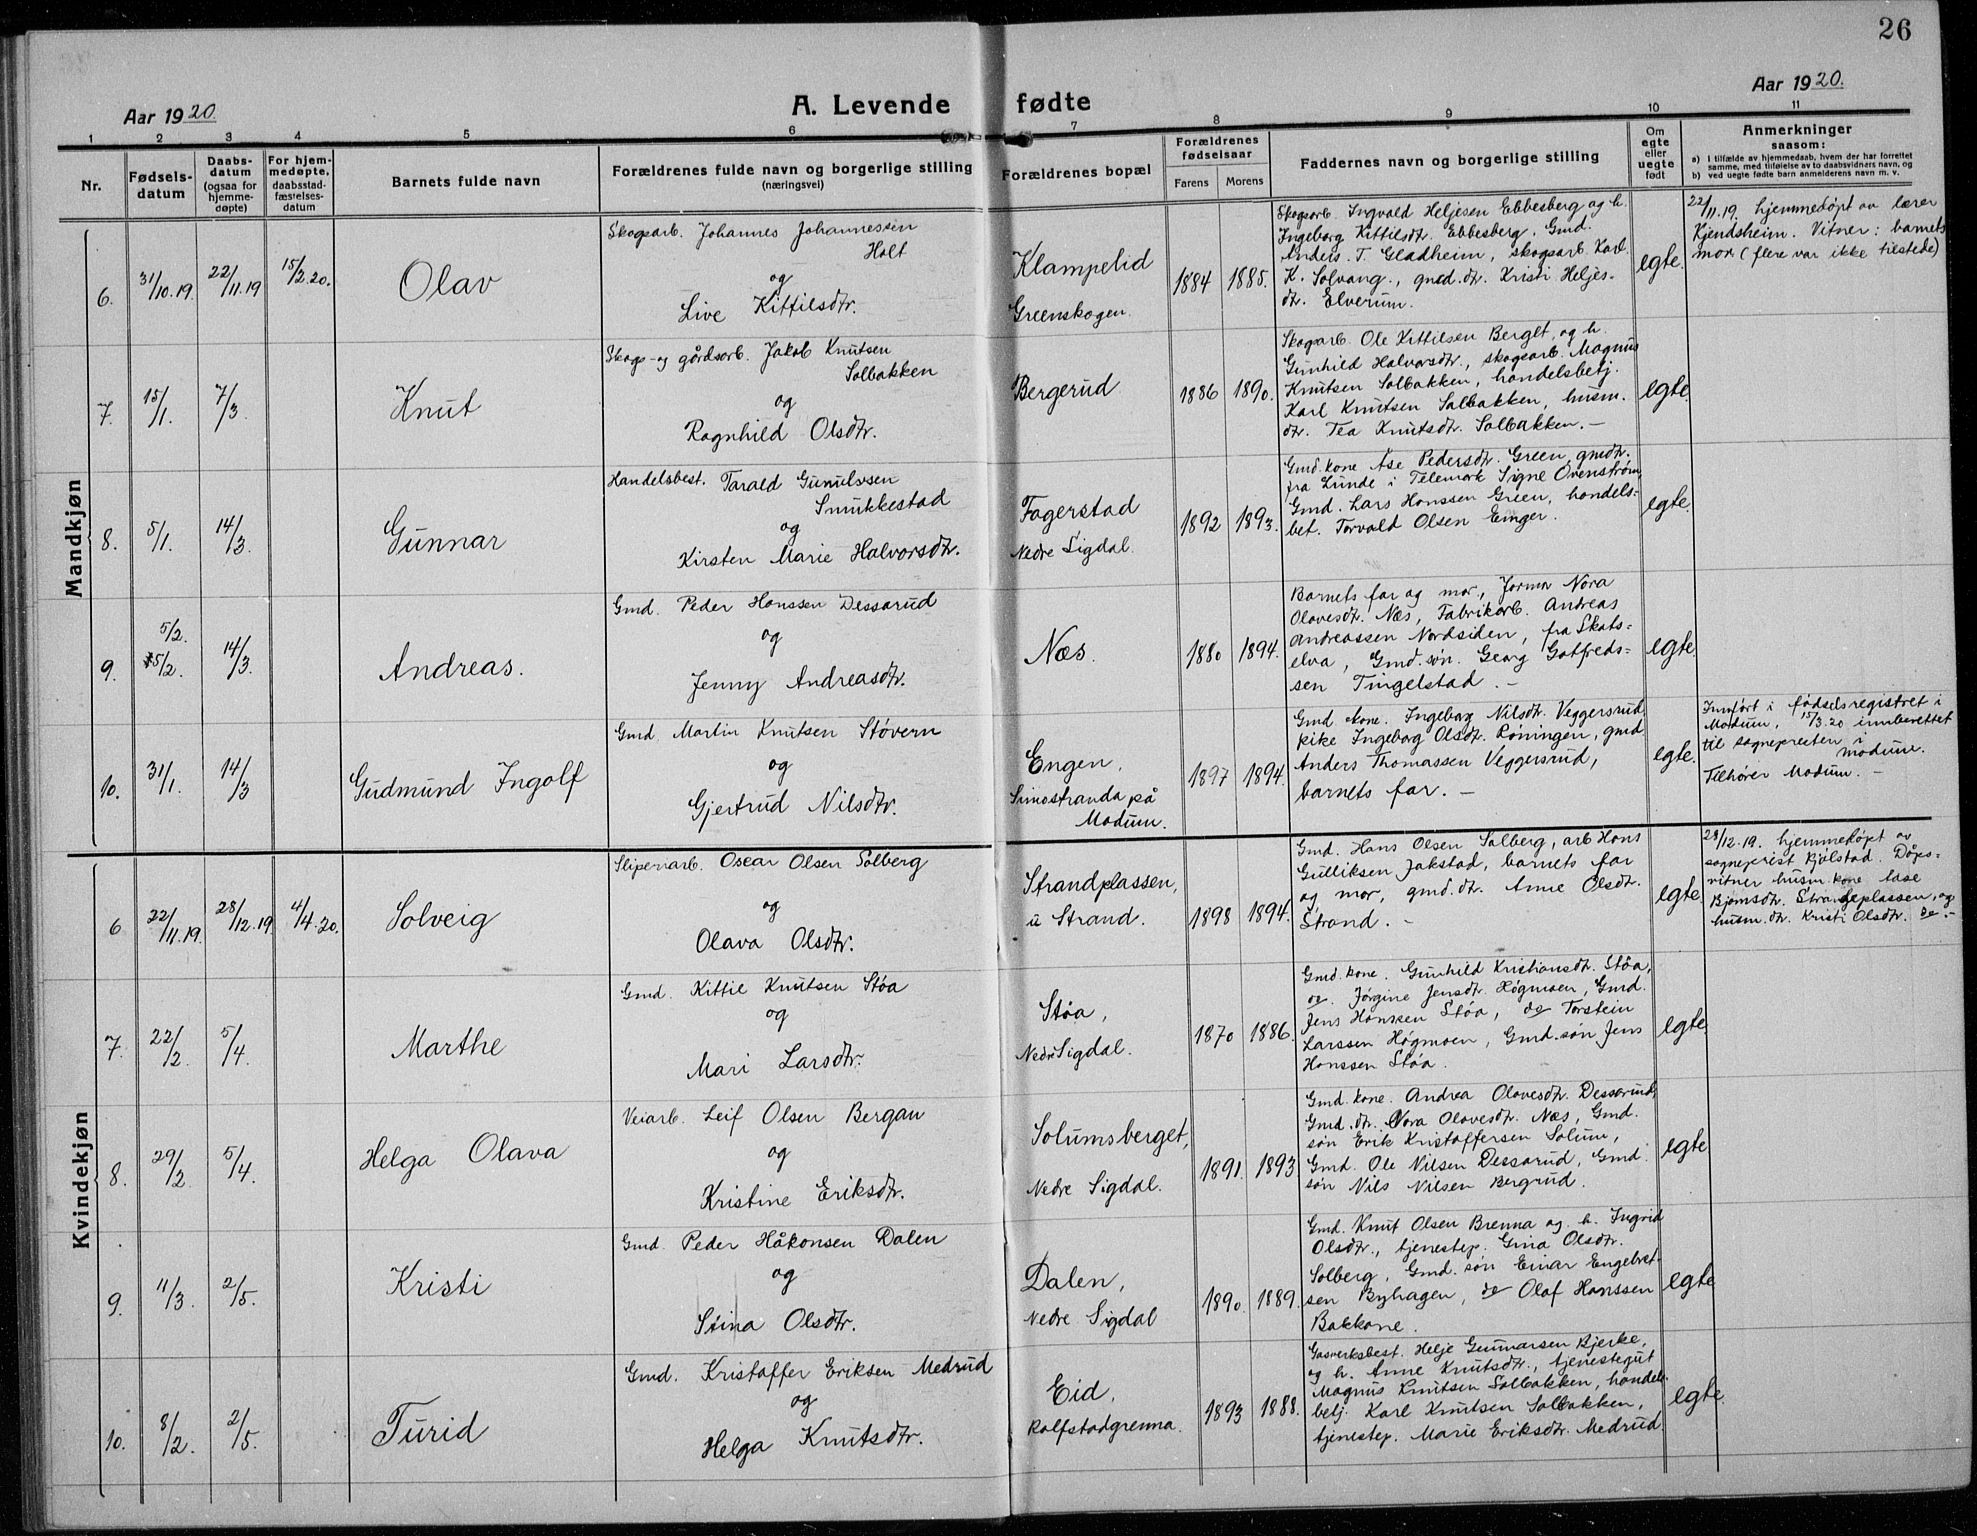 26
Aar 1920.
A. Levende fødte
Aar 1920.
1 2 3 4 5 6 7 8 9 10 11
Nr.
Fødsels-
datum
Daabs-
datum
(ogsaa for
hjemme-
døpte)
For hjem-
medøpte,
daabsstad-
fæstelses-
datum
Barnets fulde navn
Forældrenes fulde navn og borgerlige stilling
(næringsvei)
Forældrenes bopæl
Forældrenes
fødselsaar
Farens
Morens
Faddernes navn og borgerlige stilling
Om
egte
eller
uegte
født
Anmerkninger
saasom:
a) I tilfælde av hjemmedaab, hvem der har forrettet
samme, med tilføielse av to daabsvidners navn, og
b) ved uegte fødte barn anmelderens navn m. v.
Mandkjøn
6.
31/10.19.
22/11.19
15/2.20.
Olav
Skogsarb. Johannes Johannessen
Holt
og
Live Kittilsdtr.
Klampelid
Greenskogen.
1884
1885.
Skogsarb. Ingvald Heljesen Ebbesberg og h.
Ingeborg Kittilsdtr. Ebbesberg, Gmd.
Anders. T. Gladheim, skogsarb. Karl
K. Solvang., gmd.dr. Kristi Heljes-
dtr. Elverum.
egte.
22/11.19. hjemmedøpt av lærer
Kjendsheim. Vitner: barnets
mor (flere var ikke tilstede)
7.
15/1.
7/3.
Knut
Skogs- og gårdsarb. Jakob Knutsen
Solbakken
og
Ragnhild Olsdtr.
Bergerud
1886
1890.
Skogarb. Ole Kittilsen Berget, og h.
Gunhild Halvorsdtr., skogsarb. Magnus
Knutsen Solbakken, handelsbetj.
Karl Knutsen Solbakken, husm.
dtr. Tea Knutsdtr. Solbakken. –
egte.
8.
5/1.
14/3.
Gunnar
Handelsbest. Tarald Gunulvsen
Smukkestad
og
Kirsten Marie Halvorsdtr.
Fagerstad
Nedre Sigdal.
1892
1893.
Gmd. kone Åse Pedersdtr. Green, gmdtr.
fra Lunde i Telemark Signe Ovenstrøm,
Gmd. Lars Hanssen Green, handels-
bet. Torvald Olsen Einger.
egte.
9.
5/2.
14/3.
Andreas.
Gmd. Peder Hanssen Dessarud
og
Jenny Andreasdtr.
Næs.
1880
1894.
Barnets far og mor, Jormor Nora
Olavesdtr. Næs, Fabrikarb. Andreas
Andreassen Nordsiden, fra Skats-
elva, Gmd. søn. Georg Gotfreds-
sen Tingelstad. –
egte.
10.
31/1.
14/3
Gudmund Ingolf
Gmd. Martin Knutsen Støvern
og
Gjertrud Nilsdtr.
Engen,
Simostranda på
Modum.
1897
1894.
Gmd kone. Ingeborg Nilsdtr. Veggersrud,
pike Ingeborg Olsdtr. Røningen, gmd
Anders Thomassen Veggersrud,
barnets far. –
egte.
Innført i fødselsregistret i
Modum, 15/3.20 innberettet
til sognepresten i
Modum.
Tilhører Modum. –
Kvindekjøn
6
22/11.19.
28/12.19.
4/4.20.
Solveig
Sliperiarb. Oscar Olsen Solberg
og
Olava Olsdtr.
Strandplassen,
u Strand.
1898
1894.
Gmd. Hans Olsen Solberg, arb Hans
Gulliksen Jakstad, barnets far
og mor, gmd.dt. Anne Olsdtr.
Strand. –
egte.
28/12.19. hjemmedøpt av
sogneprest Kjølstad. Dåps-
vitner husm. kone Aase
Bjørnsdtr. Strandeplassen, og
husm. dtr. Kristi Olsdtr. do. –
7.
22/2.
5/4.
Marthe
Gmd. Kittil Knutsen Støa
og
Mari Larsdtr.
Støa,
Nedre Sigdal.
1870
1886.
Gmd. kone. Gunhild Kristiansdtr. Støa,
do. Jørgine Jensdtr. Høgmoen, Gmd.
Jens Hanssen Støa, do Torstein
Larssen Høgmoen, Gmd. søn Jens
Hanssen Støa.
egte.
8.
29/2.
5/4.
Helga Olava
Veiarb. Leif Olsen Bergan
og
Kristine Eriksdtr.
Solumsberget,
Nedre Sigdal.
1891.
1893
Gmd. kone. Andrea Olavesdtr. Dessarud,
Gmd. dtr. Nora Olavesdtr. Næs, Gmd.
søn Erik Kristoffersen Solum,
Gmd. Ole Nilsen Dessarud, Gmd.
søn Nils Nilsen Bergrud.
egte
9.
11/3.
2/5.
Kristi
Gmd. Peder Håkonsen Dalen
og
Stina Olsdtr.
Dalen,
Nedre Sigdal
1890.
1889.
Gmd. Knut Olsen Brenna og. h. Ingrid
Olsdtr., tjenestep. Gina Olsdtr.
Solberg, Gmd. søn Einar Engebret-
sen Byhagen, do Olaf Hanssen
Bakkane.
egte
10.
8/2.
2/5.
Turid
Gmd. Kristoffer Eriksen Medrud
og
Helga Knutsdtr.
Eid,
Rolfstadgrenna.
1893
1888.
Gasverksbest. Helje Gunnarsen Bjerke,
og h. Anne Knutsdtr., tjenestegut
Magnus Knutsen Solbakken, handels-
betj. Karl Knutsen Solbakken,
tjenestep. Marie Eriksdtr. Medrud.
egte.